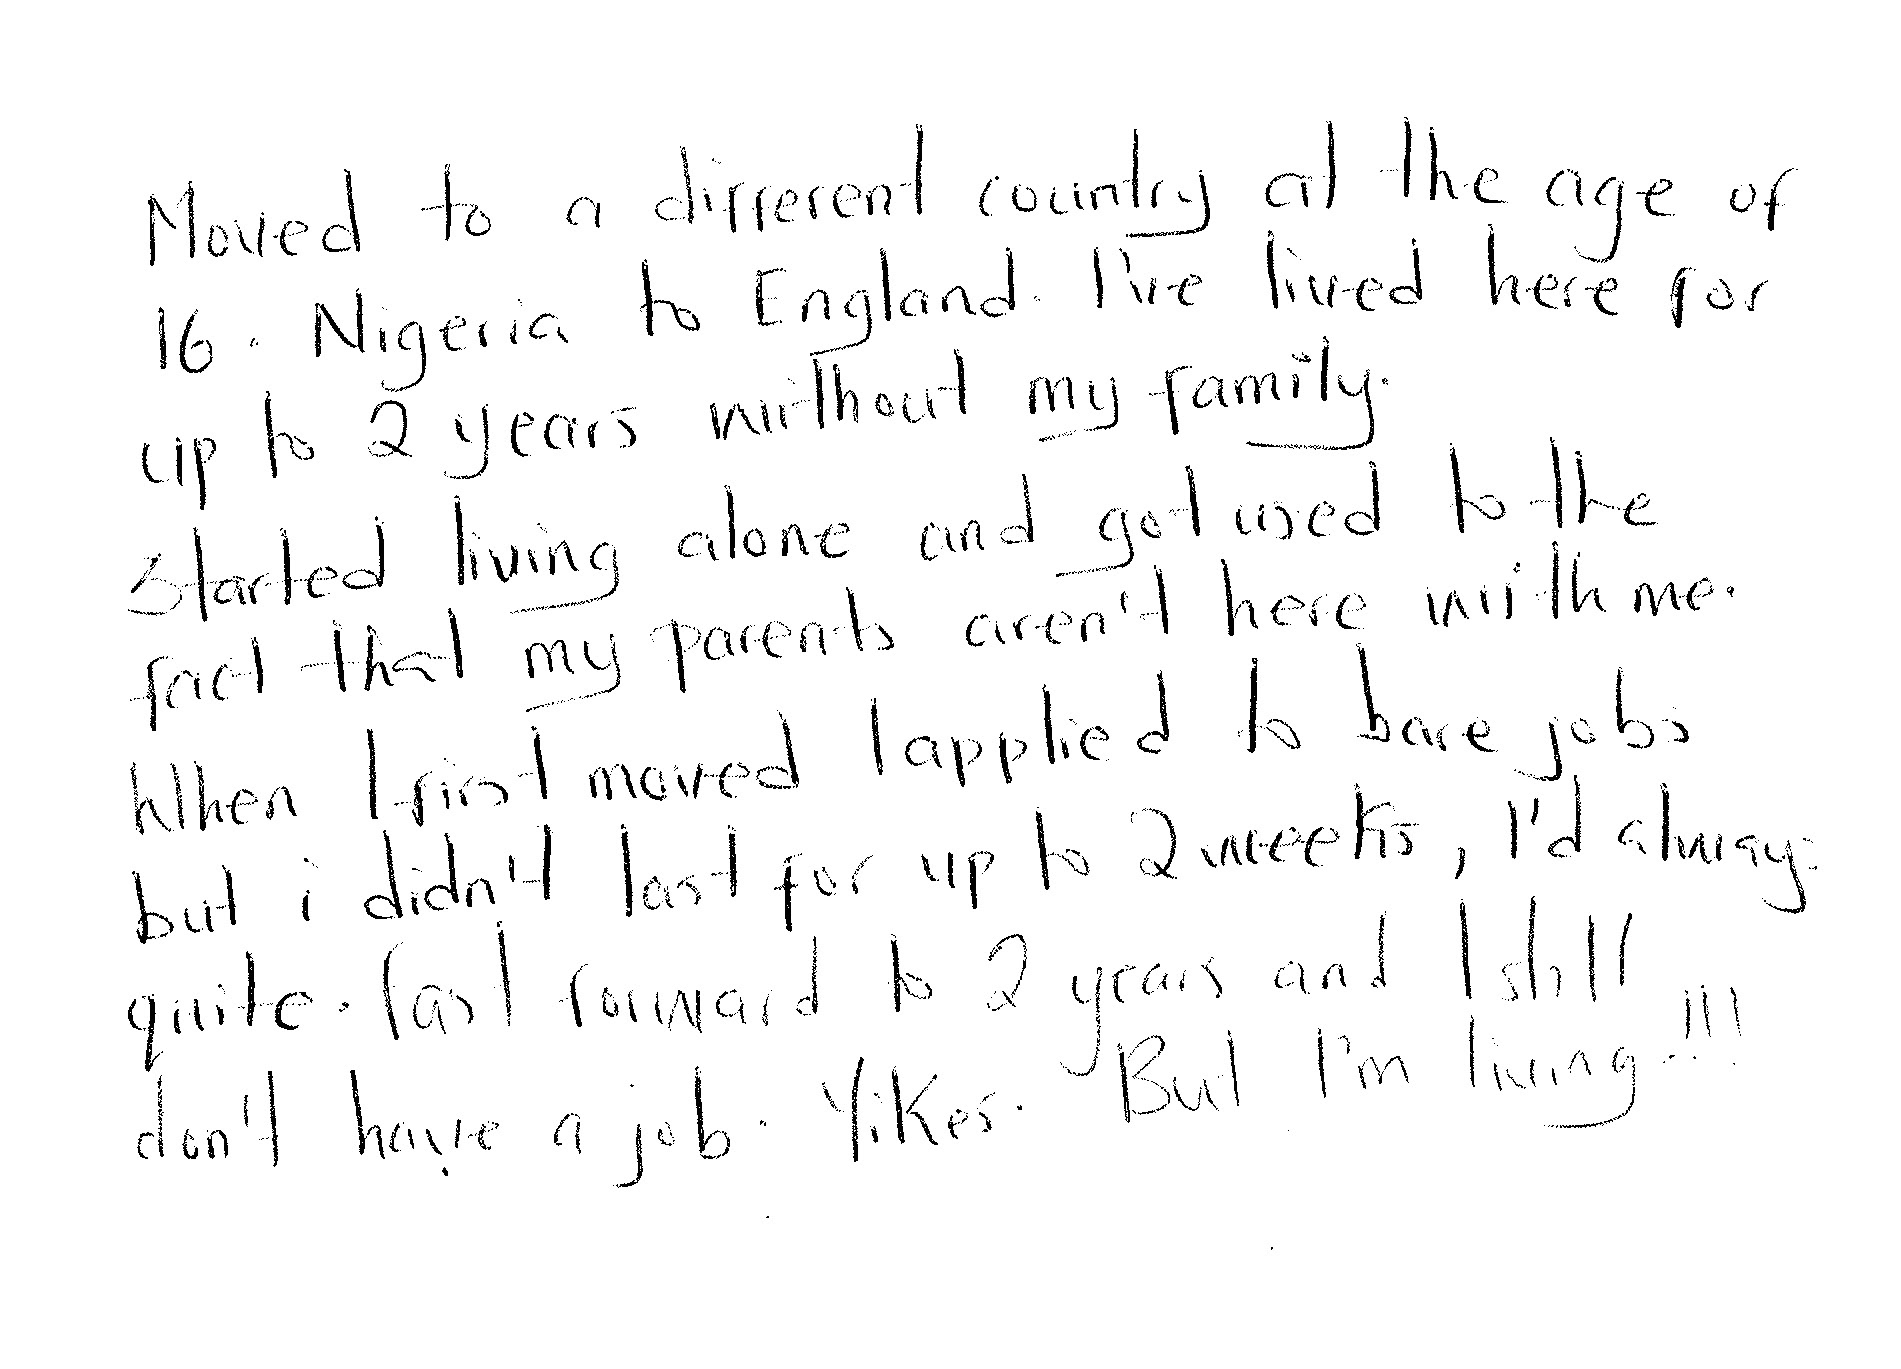 Moved to a different country at the age of
16. Nigeria to England. I've lived here for
up to 2 years without my family.
Started living alone and got used to the
fact that my parents aren't here with me.
When I first moved I applied to bare jobs
but i didn't last for up to 2 weeks, I'd always
quite. Fast forward to 2 years and I still
don't have a job. Yikes. But I'm living...!!!